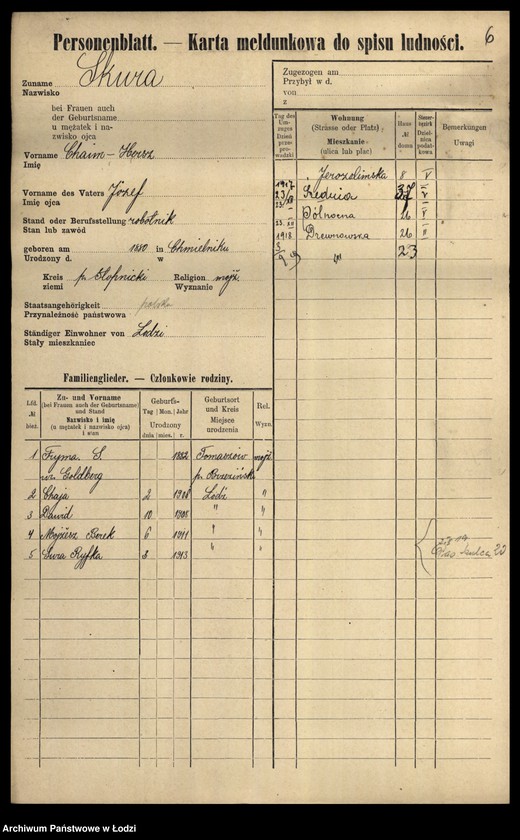 6
Personenblatt. — Karta meldunkowa do spisu ludności.
Zuname Skura
Nazwisko
bei Frauen auch
der Geburtsname
u mężatek i na-
zwisko ojca
Vorname Chaim-Hersz
Imię
Vorname des Vaters Józef
Imię ojca
Stand oder Berufsstellung robotnik
Stan lub zawód
geboren am 1880 in Chmielniku
Urodzony d. w
Kreis p. Stopnicki Religion mojż.
ziemi Wyznanie
Staatsangehörigkeit polska
Przynależność państwowa
Ständiger Einwohner von Łodzi
Stały mieszkaniec
Zugezogen am
Przybył w d.
von
z
Tag des Um-
zuges
Dzień
przepro-
wadzki
Wohnung
(Strasse oder Platz)
Mieszkanie
(ulica lub plac)
Haus
№
domu
Steuer-
bezirk
Dziel-
nica
podat-
kowa
Bemerkungen
Uwagi
Jerozolimska 8 V
1917
23/VII Średnia 37 V
Północna 16 V
23. XII
1918 Drewnowska 26 II
3/9 19 " 23
Familienglieder. — Członkowie rodziny.
Lfd.
№
bież.
Zu- und Vorname
(bei Frauen auch der Geburtsname)
und Stand
Nazwisko i imię
(u mężatek i nazwisko ojca)
i stan
Geburts-
Tag Mon. Jahr
Urodzony
dnia mies. r.
Geburtsort
und Kreis
Miejsce
urodzenia
Rel.
Wyzn.
1 Fryma. S. 1882 Tomaszów mojż.
Goldberg p. Brzeziński
2 Chaja 2 1908 Łódź "
3 Dawid 10 1908 " "
4 Mojżesz Borek 6 1911 " "
5 Sura Ryfka 8 1913 " "
20
Archiwum Państwowe w Łodzi